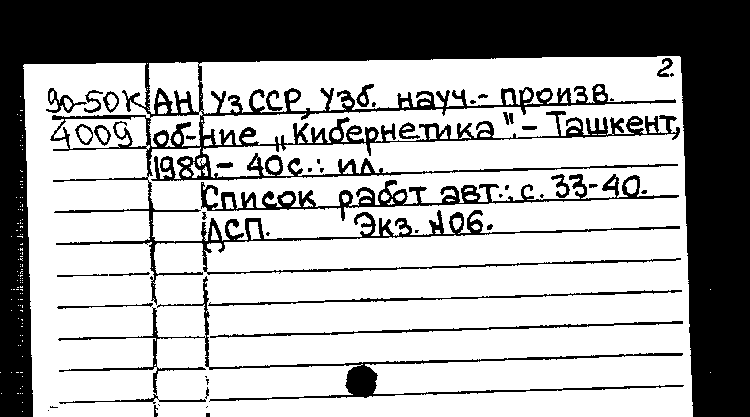 2.
90-50К АН УзССР, Узб. науч.- произв.
4009 об-ние „Кибернетика".- Ташкент,
1989.- 40 с.: ил.
Список работ авт.: с. 33-40.
ДСП. Экз. №06.